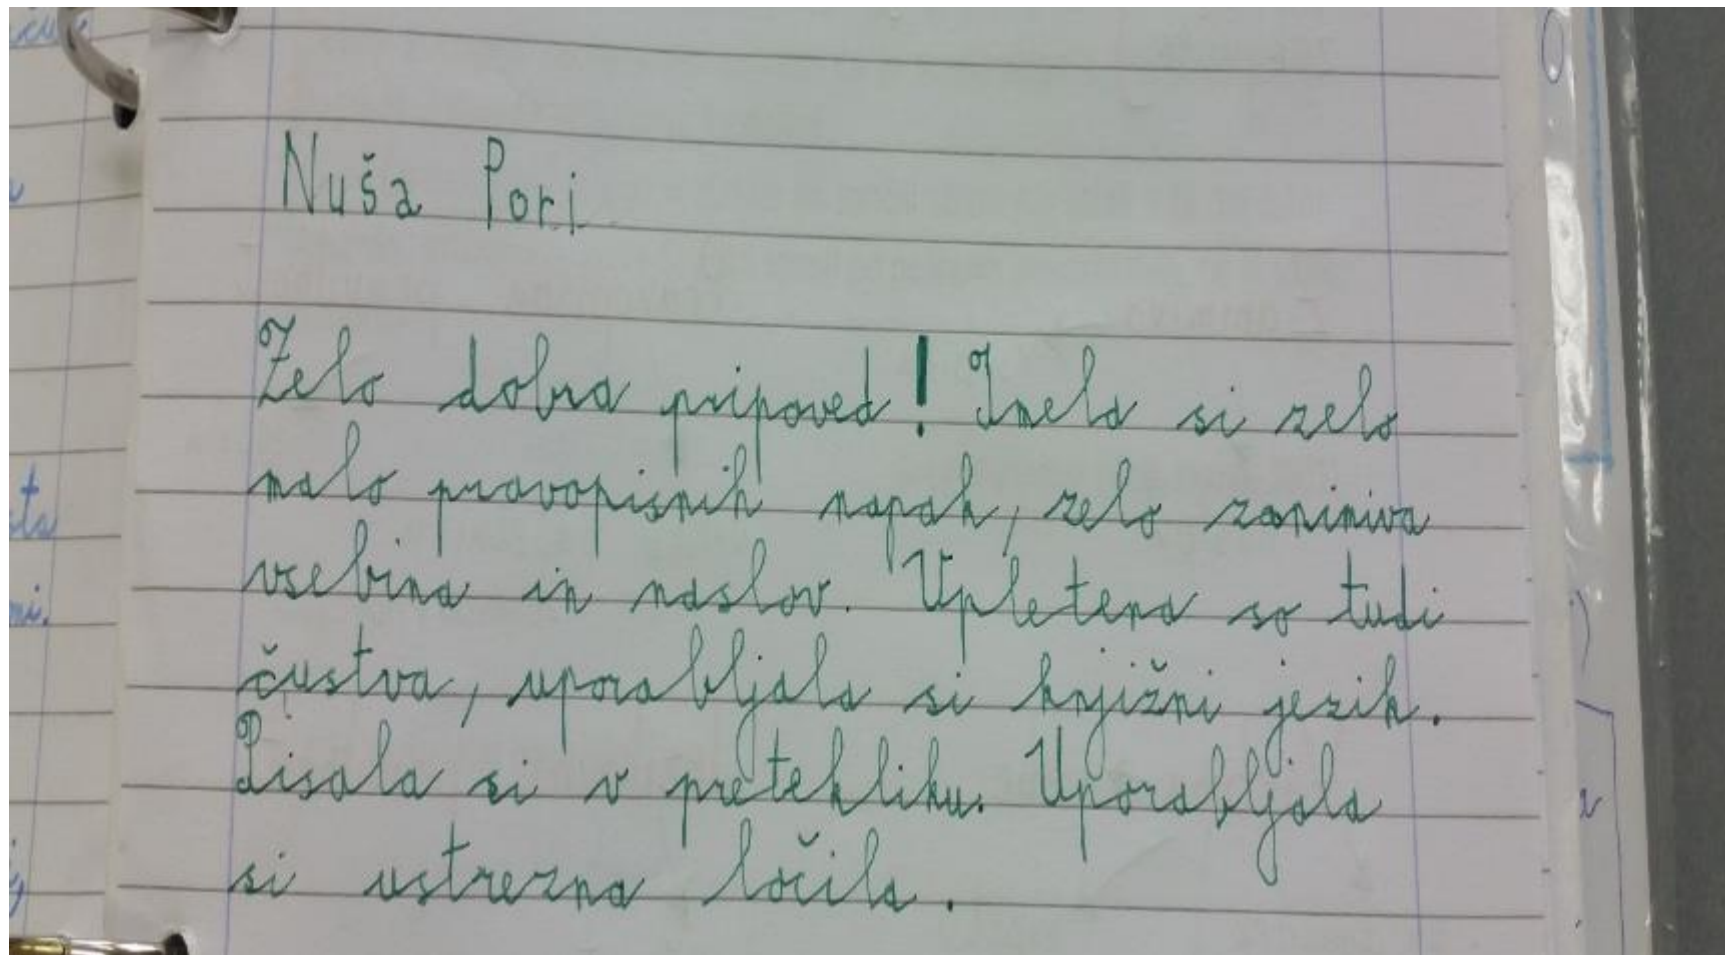 Nuša Pori
Zelo dobra pripoved! Imela si zelo
malo pravopisnih napak, zelo zanimiva
vsebina in naslov. Upletena so tudi
čustva, uporabljala si knjižni jezik.
Pisala si v pretekliku. Uporabljala
si ustrezna ločila.